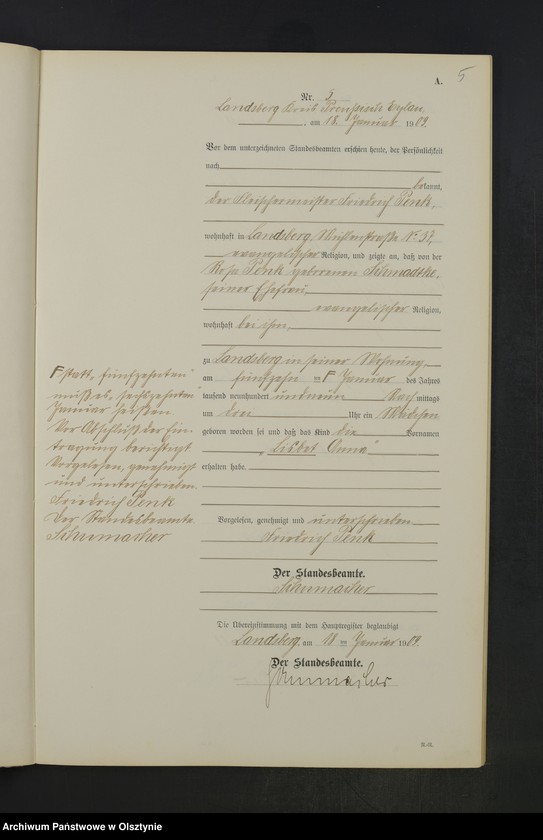 A.
5
Nr. 5
Landsberg Kreis Preussisch Eylau,
, am 18. Januar 1909.
Vor dem unterzeichneten Standesbeamten erschien heute, der Persönlichkeit
nach
bekannt,
der Fleischermeister Friedrich Penk,
wohnhaft in Landsberg, Mühlenstraße No 37,
evangelischer Religion, und zeigte an, daß von der
Rosa Penk geborenen Schmadtke,
seiner Ehefrau
evangelischer Religion,
wohnhaft bei ihm,
zu Landsberg in seiner Wohnung
am fünfzehn ten F Januar des Jahres
tausend neunhundert und neun Nach mittags
um drei Uhr ein Mädchen
geboren worden sei und daß das Kind die Vornamen
"Lisbet Anna"
erhalten habe.
F statt "fünfzehnten"
muß es "sechzehnten"
Januar heißen.
Vor Abschluß der Ein-
tragung berichtigt
Vorgelesen, genehmigt
und unterschrieben
Friedrich Penk
Der Standesbeamte
Schumacher
Vorgelesen, genehmigt und unterschrieben
Friedrich Penk
Der Standesbeamte.
Schumacher
Die Übereinstimmung mit dem Hauptregister beglaubigt
Landsberg, am 18 ten Januar 1909.
Der Standesbeamte.
Schumacher
Archiwum Państwowe w Olsztynie